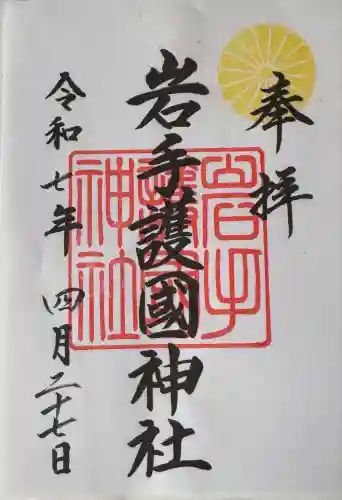 奉拝
岩手護國神社
令和七年 四月二十七日
岩手護國神社